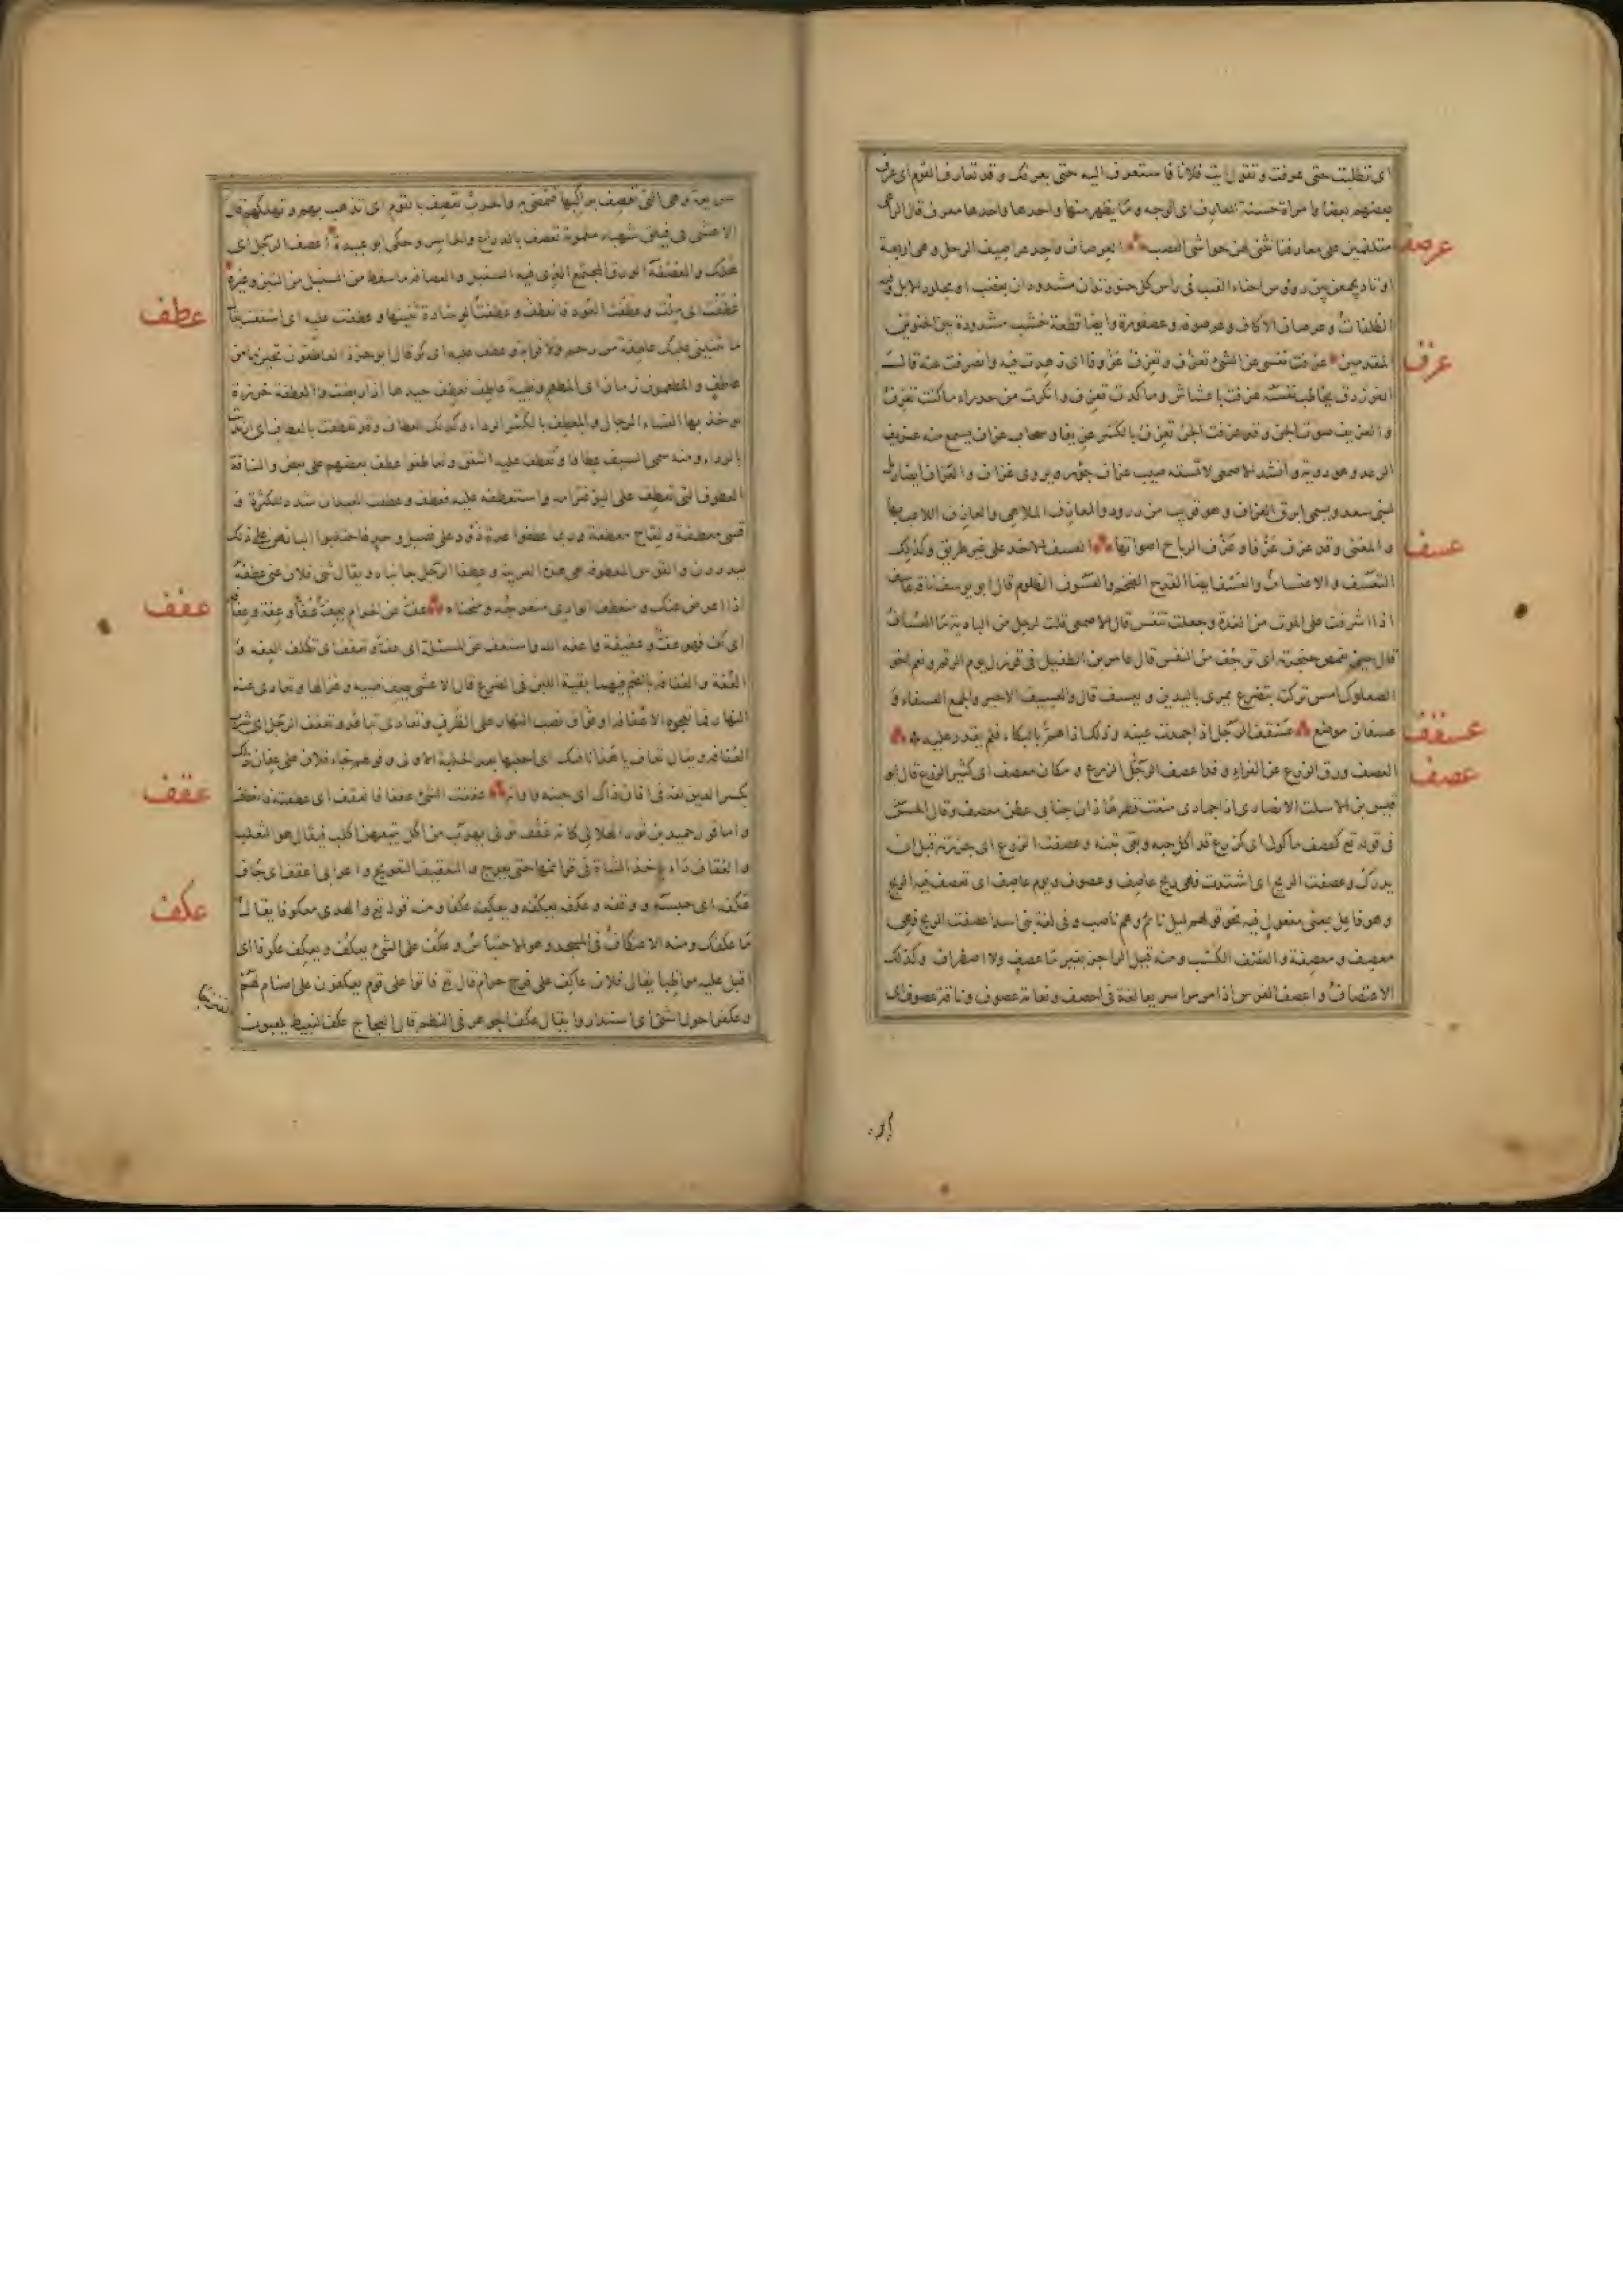 اى تطلبت حتى عرفت وتقول ايت فلانا فاستعرف اليه حتى يعرفك وقد تعارف القوم اى عرف
بعضهم بعضا وامراة حسنة المعارف اى الوجه وما يظهر منها واحدها معرف قال الراعى
متلثمين على معارفنا نثنى لهن حواشى العصب العرصاف واحد عراصيف الرحل وهى اربعة
عرصف
اوتاد يجمعن بين رؤوس احناء القتب فى راس كل حنو وتدان مشدودان بعقب او بجلود الابل وفيه
الظلفات وعرصاف الاكاف وعرصوفه وعصفوره ايضا قطعة خشب مشدودة بين الحنوين
المقدمين عزفت نفسى عن الشىء تعزف وتعزف عزوفا اى زهدت فيه وانصرفت عنه قال
عزف
الفرزدق يخاطب نفسه عزفت باعشاش وما كدت تعزف وانكرت من حدراء ما كنت تعرف
والعزيف صوت الجن وقد عزفت الجن تعزف بالكسر عزيفا وسحاب عزاف يسمع منه عزيف
الرعد وهو دويه وانشد الاصمعى لا تسقه صيب عزاف جؤر ويروى غراف والعزاف ايضا رمل
لبنى سعد ويسمى ابرق العزاف وهو قريب من زرود والمعازف الملاهى والعازف اللاعب بها
والمغنى وقد عزف عزفا وعزف الرياح اصواتها العسف الاخذ على غير طريق وكذلك
عسف
التعسف والاعتساف والعسف ايضا القدح الضخم والعسوف الظلوم قال ابو يوسف ناقة عاسف
اذا اشرفت على الموت من الغدة وجعلت تنفس قال الاصمعى قلت لرجل من البادية ما العساف
قال حين تقمص حنجرته اى ترجف من النفس قال عامر بن الطفيل فى قرزل يوم الرقم ونعم اخو
الصعلوك امس تركته بتضرع يمرى باليدين ويعسف قال والعسيف الاجير والجمع العسفاء و
عسفان موضع عسقف الرجل اذا جمدت عينه وذلك اذا هم بالبكاء فلم يقدر عليه
عسقف
العصف ورق الزرع عن الفراء وقد اعصف الزرع ومكان معصف اى كثير الزرع قال ابو
عصف
قيس بن الاسلت الانصارى اذا جمادى منعت قطرها زان جنابى عطن معصف وقال الحسن
فى قوله تع كعصف ماكول اى كزرع قد اكل حبه وبقى تبنه وعصفت الزرع اى جززته قبل ان
يدرك وعصفت الريح اى اشتدت فهى ريح عاصف وعصوف ويوم عاصف اى تعصف فيه الريح
وهو فاعل بمعنى مفعول فيه نحو قولهم ليل نائم وهم ناصب وفى لغة بنى اسد اعصفت الريح فهى
معصف ومعصفة والعصف الكسب ومنه قول الراجز بغير ما عصف ولا اصطراف وكذلك
الاعتصاف واعصف الفرس اذا مر مرا سريعا لغة فى احصف ونعامة عصوف وناقة عصوف اى
سريعة وهى التى تعصف براكبها فتمضى به والحرب تعصف بالقوم اى تذهب بهم وتهلكهم قال
الاعشى فى فيلق شهباء ملمومة تعصف بالدارع والحاسر وحكى ابو عبيدة اعصف الرجل اى
هلك والعصيفة الورق المجتمع الذى فيه السنبل والعصافة ما سقط من السنبل من التبن وغيره
عطفت اى ملت وعطفت العود فانعطف وعطفت الوسادة ثنيتها وعطفت عليه اى اشفقت يقال
عطف
ما تثنينى عليك عاطفة من رحم ولا قرابة وعطف عليه اى كر قال ابو وجزة العاطفون تحين ما من
عاطف والمطعمون زمان اين المطعم وظبية عاطف تعطف جيدها اذا ربضت والعطفة خرزة
يؤخذ بها النساء الرجال والمعطف بالكسر الرداء وكذلك العطاف وقد تعطفت بالعطاف اى ارتديت
بالرداء ومنه سمى السيف عطافا وتعطف عليه اشفق وتعاطفوا عطف بعضهم على بعض والناقة
العطوف التى تعطف على البو فترأمه واستعطفه عليه فعطف وعطفت العيدان شدد للكثرة و
قسى معطفة ولقاح معطفة وربما عطفوا عدة ذود على فصيل واحد فاحتلبوا البانهن على ذلك
ليدررن والقوس المعطوفة هى هذه العربية وعطفا الرجل جانباه ويقال ثنى فلان عنى عطفه
اذا اعرض عنك ومنعطف الوادى منعرجه ومنحناه عف عن الحرام يعف عفا وعفة وعفافا
عفف
اى كف فهو عف وعفيف واعفه الله واستعف عن المسئلة اى عف وتعفف اى تكلف العفة و
العفة والعفافة بالضم فيهما بقية اللبن فى الضرع قال الاعشى يصف ظبية وغزالها وتعادى عنه
النهار فما تعجوه الا عفافة او فواق نصب النهار على الظرف وتعادى تباعد وتعفف الرجل اى شرب
العفافة ويقال تعاف يا هذا ناقتك اى احلبها بعد الحلبة الاولى وقولهم جاء فلان على عفان ذلك
بكسر العين لغة فى افان ذاك اى حينه واوانه عقفت الشىء عقفا فانعقف اى عطفته فانعطف
عقف
واما قول حميد بن ثور الهلالى كانه عقف تولى يهرب من اكلب يتبعهن اكلب فيقال هو الثعلب
والعقاف داء ياخذ الشاة فى قوائمها حتى يعوج والتعقيف التعويج واعرابى اعقف اى جاف
عكفه اى حبسه ووقفه وعكف يعكفه ويعكفه عكفا ومنه قوله تع والهدى معكوفا يقال
عكف
ما عكفك ومنه الاعتكاف فى المسجد وهو الاحتباس وعكف على الشىء يعكف ويعكف عكوفا اى
اقبل عليه مواظبا يقال فلان عاكف على فرج حرام قال تع فاتوا على قوم يعكفون على اصنام لهم
وعكفوا حول الشىء اى استداروا يقال عكف الجوهر فى النظم قال العجاج عكف النبيط يلعبون